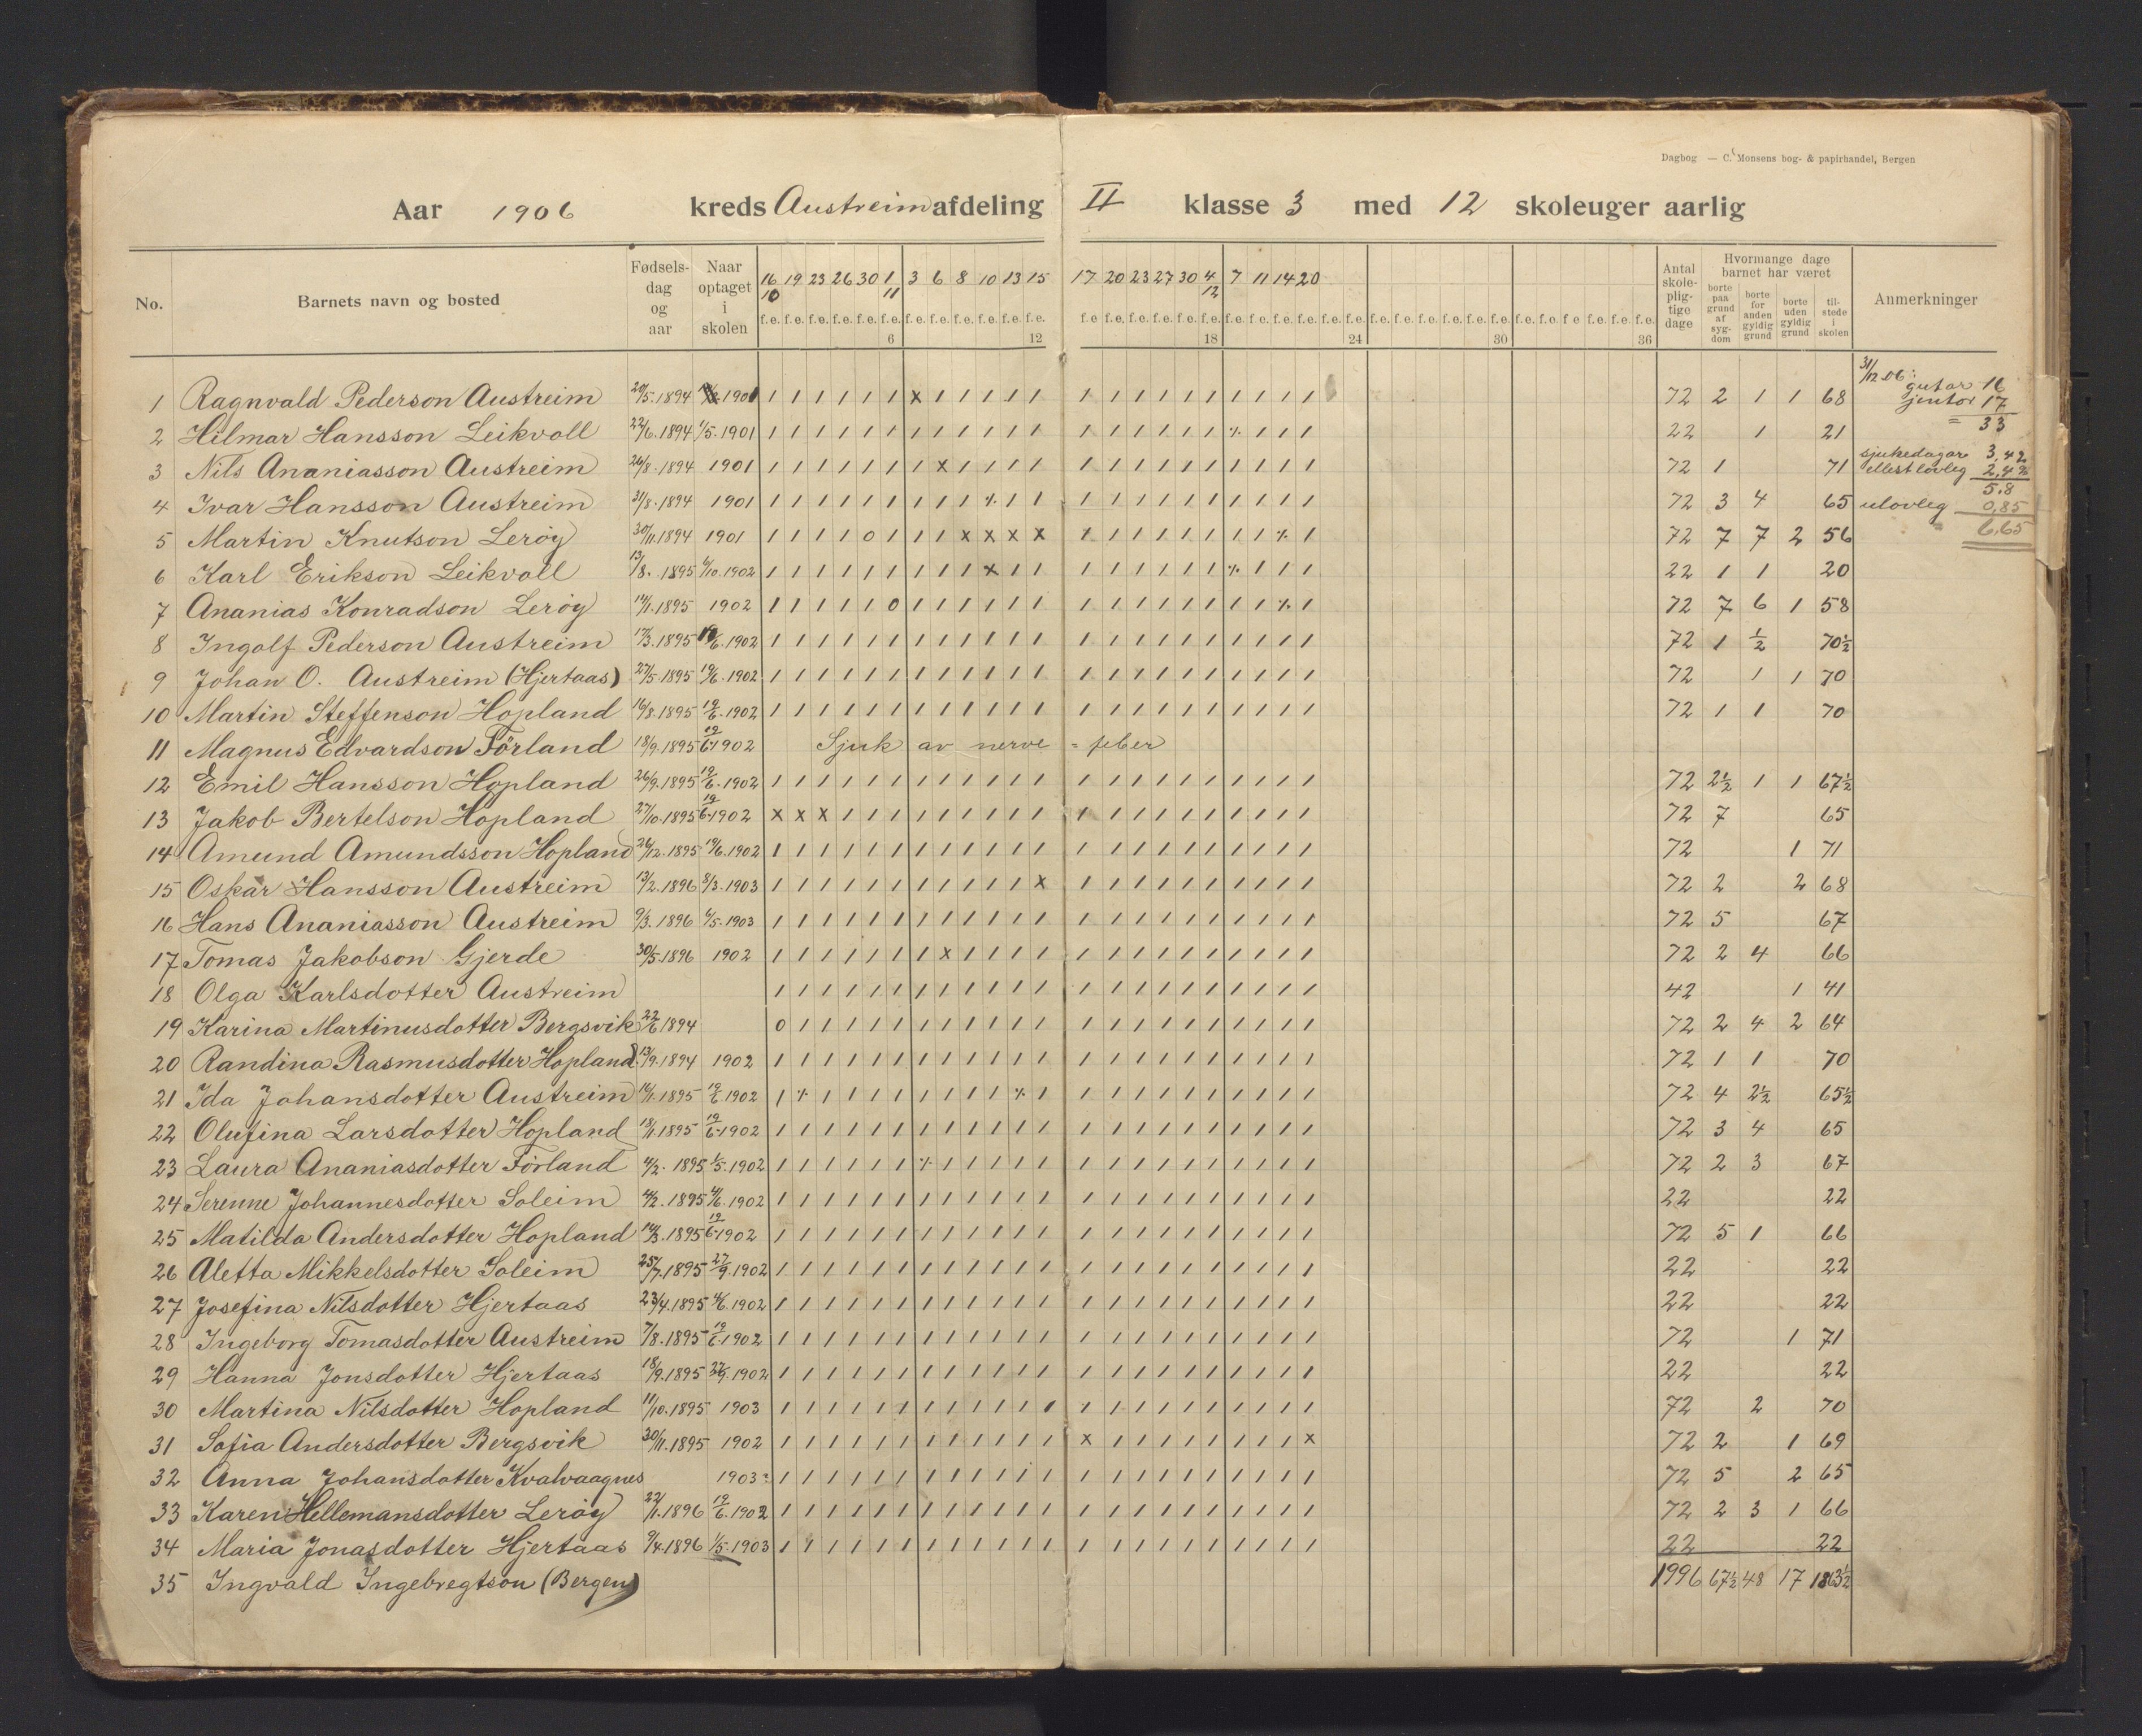 Dagbog — C. Monsens bog- & papirhandel, Bergen
Aar 1906 kreds Austreim afdeling II klasse 3 med 12 skoleuger aarlig
No. Barnets navn og bosted Fødsels-dag og aar Naar optaget i skolen
16/10 19 23 26 30 1/11 3 6 8 10 13 15 17 20 23 27 30 4/12 7 11 14 20
Antal skole-plig-tige dage
Hvormange dage barnet har været
borte paa grund af syg-dom borte for anden gyldig grund borte uden gyldig grund til-stede i skolen
Anmerkninger
f.e. f.e. f.e. f.e. f.e. f.e. f.e. f.e. f.e. f.e. f.e. f.e. f.e. f.e. f.e. f.e. f.e. f.e. f.e. f.e. f.e. f.e. f.e. f.e. f.e. f.e. f.e. f.e. f.e. f.e. f.e. f.e. f.e. f.e. f.e. f.e.
6 12 18 24 30 36
31/12 06:
gutar 16
jentor 17
= 33
sjukedagar 3,42
ellest lovleg 2,4%
5.8
ulovleg 0,85
6,65
1 Ragnvald Pederson Austreim 20/5.1894 1901 1 1 1 1 1 1 x 1 1 1 1 1 1 1 1 1 1 1 1 1 1 1 72 2 1 1 68
2 Hilmar Hansson Leikvoll 22/6.1894 1/5.1901 1 1 1 1 1 1 1 1 1 1 1 1 1 1 1 1 1 1 ⁒ 1 1 1 22 1 21
3 Nils Ananiasson Austreim 26/8.1894 1901 1 1 1 1 1 1 1 x 1 1 1 1 1 1 1 1 1 1 1 1 1 1 72 1 71
4 Ivar Hansson Austreim 31/8.1894 1901 1 1 1 1 1 1 1 1 1 ⁒ 1 1 1 1 1 1 1 1 1 1 1 1 72 3 4 65
5 Martin Knutson Lerøy 30/11.1894 1901 1 1 1 1 0 1 1 1 x x x x 1 1 1 1 1 1 1 1 ⁒ 1 72 7 7 2 56
6 Karl Erikson Leikvoll 13/8.1895 6/10.1902 1 1 1 1 1 1 1 1 1 x 1 1 1 1 1 1 1 1 ⁒ 1 1 1 22 1 1 20
7 Ananias Konradson Lerøy 14/1.1895 1902 1 1 1 1 1 0 1 1 1 1 1 1 1 1 1 1 1 1 1 1 ⁒ 1 72 7 6 1 58
8 Ingolf Pederson Austreim 17/3.1895 19/6.1902 1 1 1 1 1 1 1 1 1 1 1 1 1 1 1 1 1 1 1 1 1 1 72 1 ½ 70½
9 Johan O. Austreim (Hjertaas) 27/5.1895 19/6.1902 1 1 1 1 1 1 1 1 1 1 1 1 1 1 1 1 1 1 1 1 1 1 72 1 1 70
10 Martin Steffenson Hopland 16/8.1895 19/6.1902 1 1 1 1 1 1 1 1 1 1 1 1 1 1 1 1 1 1 1 1 1 1 72 1 1 70
11 Magnus Edvardson Förland 18/9.1895 19/6.1902 Sjuk av nerve = feber
12 Emil Hansson Hopland 26/9.1895 19/6.1902 1 1 1 1 1 1 1 1 1 1 1 1 1 1 1 1 1 1 1 1 1 1 72 2½ 1 1 67½
13 Jakob Bertelson Hopland 27/10.1895 19/6.1902 x x x 1 1 1 1 1 1 1 1 1 1 1 1 1 1 1 1 1 1 1 72 7 65
14 Amund Amundsson Hopland 26/12.1895 19/6.1902 1 1 1 1 1 1 1 1 1 1 1 1 1 1 1 1 1 1 1 1 1 1 72 1 71
15 Oskar Hansson Austreim 13/2.1896 8/3.1903 1 1 1 1 1 1 1 1 1 1 1 x 1 1 1 1 1 1 1 1 1 1 72 2 2 68
16 Hans Ananiasson Austreim 9/3.1896 6/5.1903 1 1 1 1 1 1 1 1 1 1 1 1 1 1 1 1 1 1 1 1 1 1 72 5 67
17 Tomas Jakobson Gjerde 30/5.1896 1902 1 1 1 1 1 1 1 x 1 1 1 1 1 1 1 1 1 1 1 1 1 1 72 2 4 66
18 Olga Karlsdotter Austreim 1 1 1 1 1 1 1 1 1 1 1 1 1 1 1 1 1 1 1 1 1 1 42 1 41
19 Karina Martinusdotter Bergsvik 22/6 1894 0 1 1 1 1 1 1 1 1 1 1 1 1 1 1 1 1 1 1 1 1 1 72 2 4 2 64
20 Randina Rasmusdotter Hopland 13/9.1894 1902 1 1 1 1 1 1 1 1 1 1 1 1 1 1 1 1 1 1 1 1 1 1 72 1 1 70
21 Ida Johansdotter Austreim 16/1.1895 19/6.1902 1 ⁒ 1 1 1 1 1 1 1 1 ⁒ 1 1 1 1 1 1 1 1 1 1 1 72 4 2½ 65½
22 Olufina Larsdotter Hopland 18/1.1895 19/6.1902 1 1 1 1 1 1 1 1 1 1 1 1 1 1 1 1 1 1 1 1 1 1 72 3 4 65
23 Laura Ananiasdotter Förland 4/2.1895 1/5.1902 1 1 1 1 1 1 ⁒ 1 1 1 1 1 1 1 1 1 1 1 1 1 1 1 72 2 3 67
24 Serenne Johannesdotter Soleim 4/2.1895 4/6.1902 1 1 1 1 1 1 1 1 1 1 1 1 1 1 1 1 1 1 1 1 1 1 22 22
25 Matilda Andersdotter Hopland 14/3.1895 19/6.1902 1 1 1 1 1 1 1 1 1 1 1 1 1 1 1 1 1 1 1 1 1 1 72 5 1 66
26 Aletta Mikkelsdotter Soleim 25/7.1895 27/9.1902 1 1 1 1 1 1 1 1 1 1 1 1 1 1 1 1 1 1 1 1 1 1 22 22
27 Josefina Nilsdotter Hjertaas 23/4.1895 4/6.1902 1 1 1 1 1 1 1 1 1 1 1 1 1 1 1 1 1 1 1 1 1 1 22 22
28 Ingeborg Tomasdotter Austreim 7/8.1895 19/6.1902 1 1 1 1 1 1 1 1 1 1 1 1 1 1 1 1 1 1 1 1 1 1 72 1 71
29 Hanna Jonsdotter Hjertaas 18/9.1895 27/9.1902 1 1 1 1 1 1 1 1 1 1 1 1 1 1 1 1 1 1 1 1 1 1 22 22
30 Martina Nilsdotter Hopland 11/10.1895 1903 1 1 1 1 1 1 1 1 1 1 1 1 1 1 1 1 1 1 1 1 1 1 72 2 70
31 Sofia Andersdotter Bergsvik 30/11.1895 1902 1 1 1 1 1 1 1 1 1 1 1 1 x 1 1 1 1 1 1 1 1 x 72 2 1 69
32 Anna Johansdotter Kvalvaagnes 1903 1 1 1 1 1 1 1 1 1 1 1 1 1 1 1 1 1 1 1 1 1 1 72 5 2 65
33 Karen Hellemansdotter Lerøy 22/1.1896 19/6.1902 1 1 1 1 1 1 1 1 1 1 1 1 1 1 1 1 1 1 1 1 1 1 72 2 3 1 66
34 Maria Jonasdotter Hjertaas 9/4.1896 1/5.1903 1 1 1 1 1 1 1 1 1 1 1 1 1 1 1 1 1 1 1 1 1 1 22 22
35 Ingvald Ingebregtson (Bergen) 1996 67½ 48 17 1863½